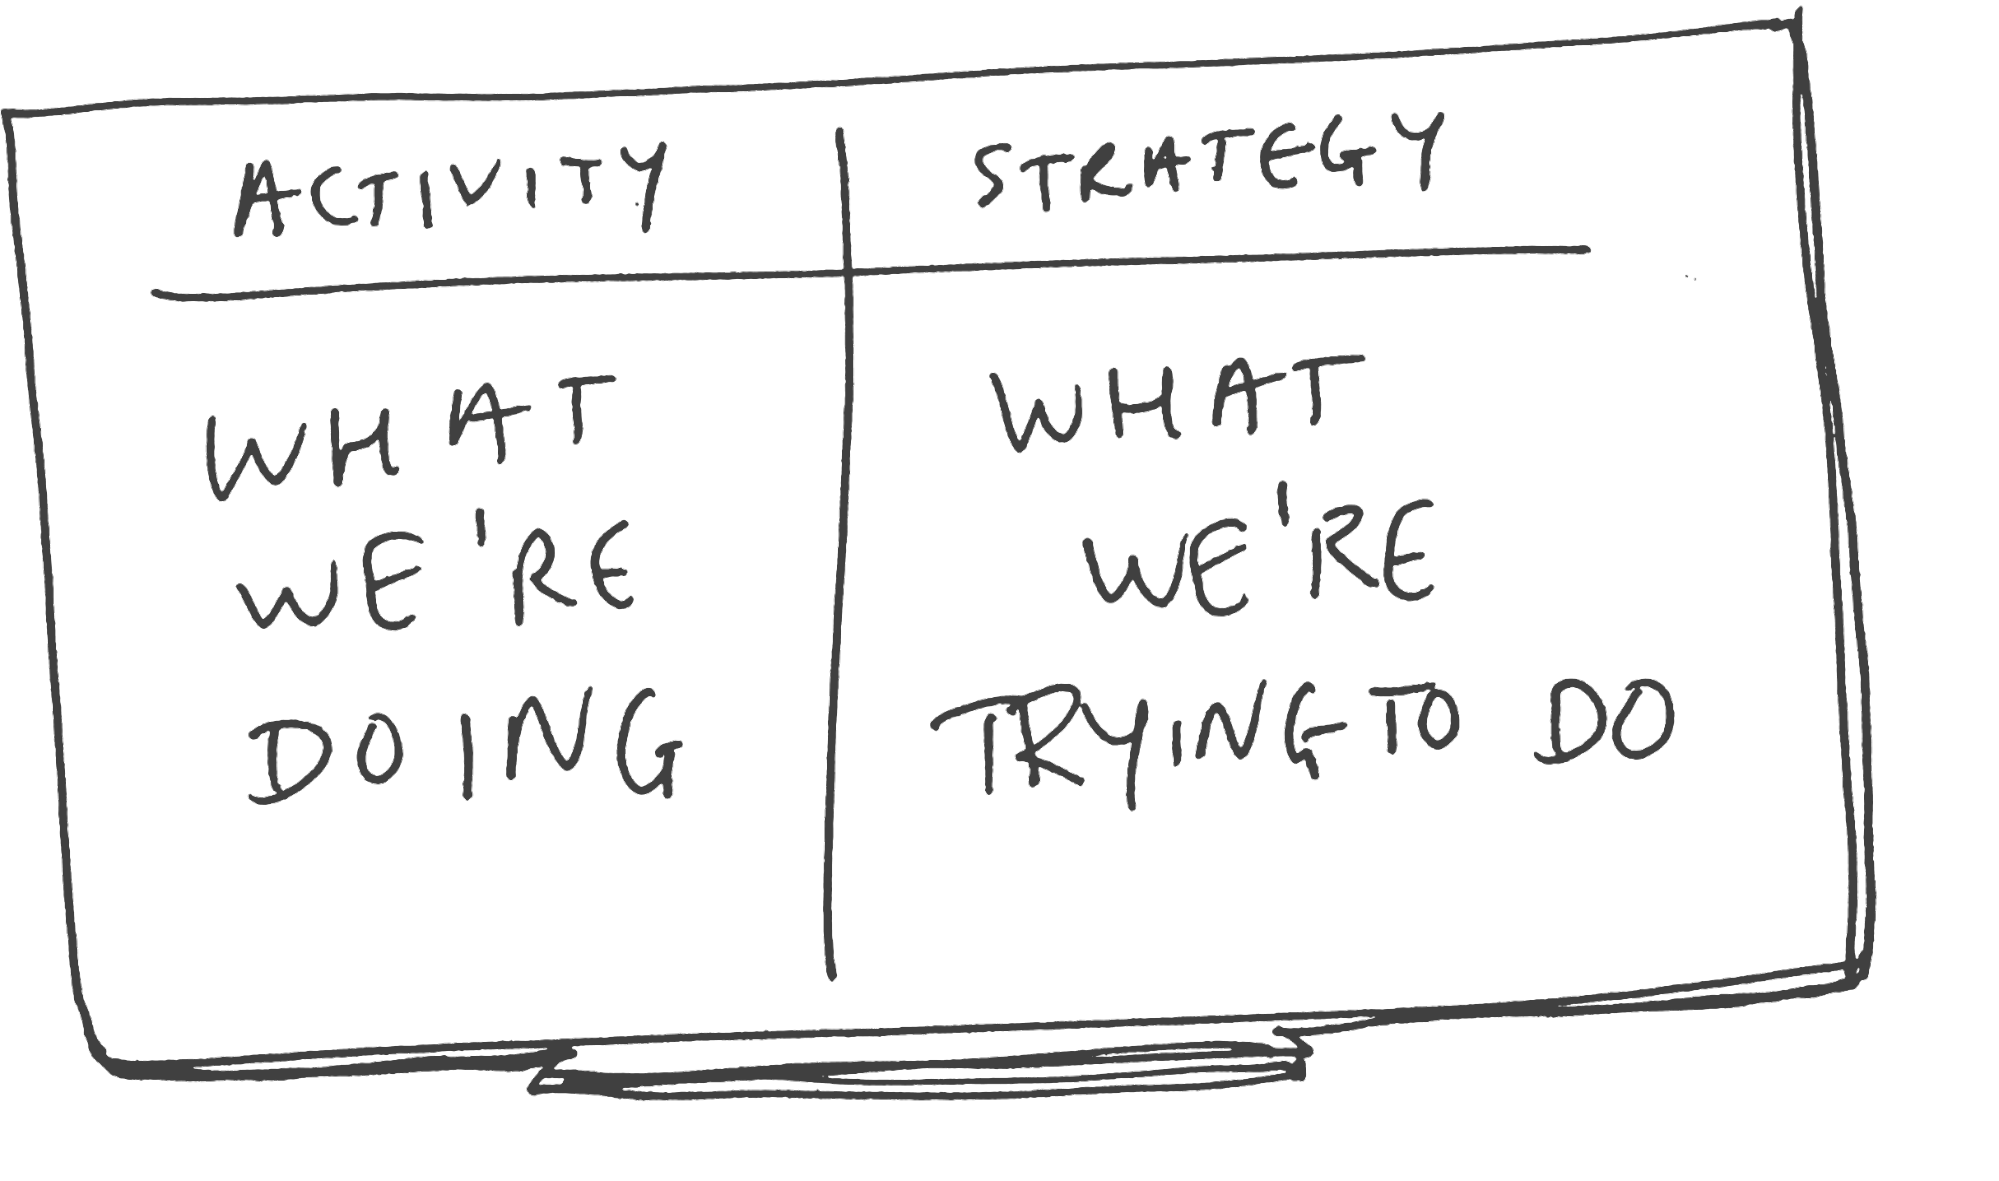 ACTIVITY
STRATEGY
WHAT
WE'RE
DOING
WHAT
WE'RE
TRYING TO DO